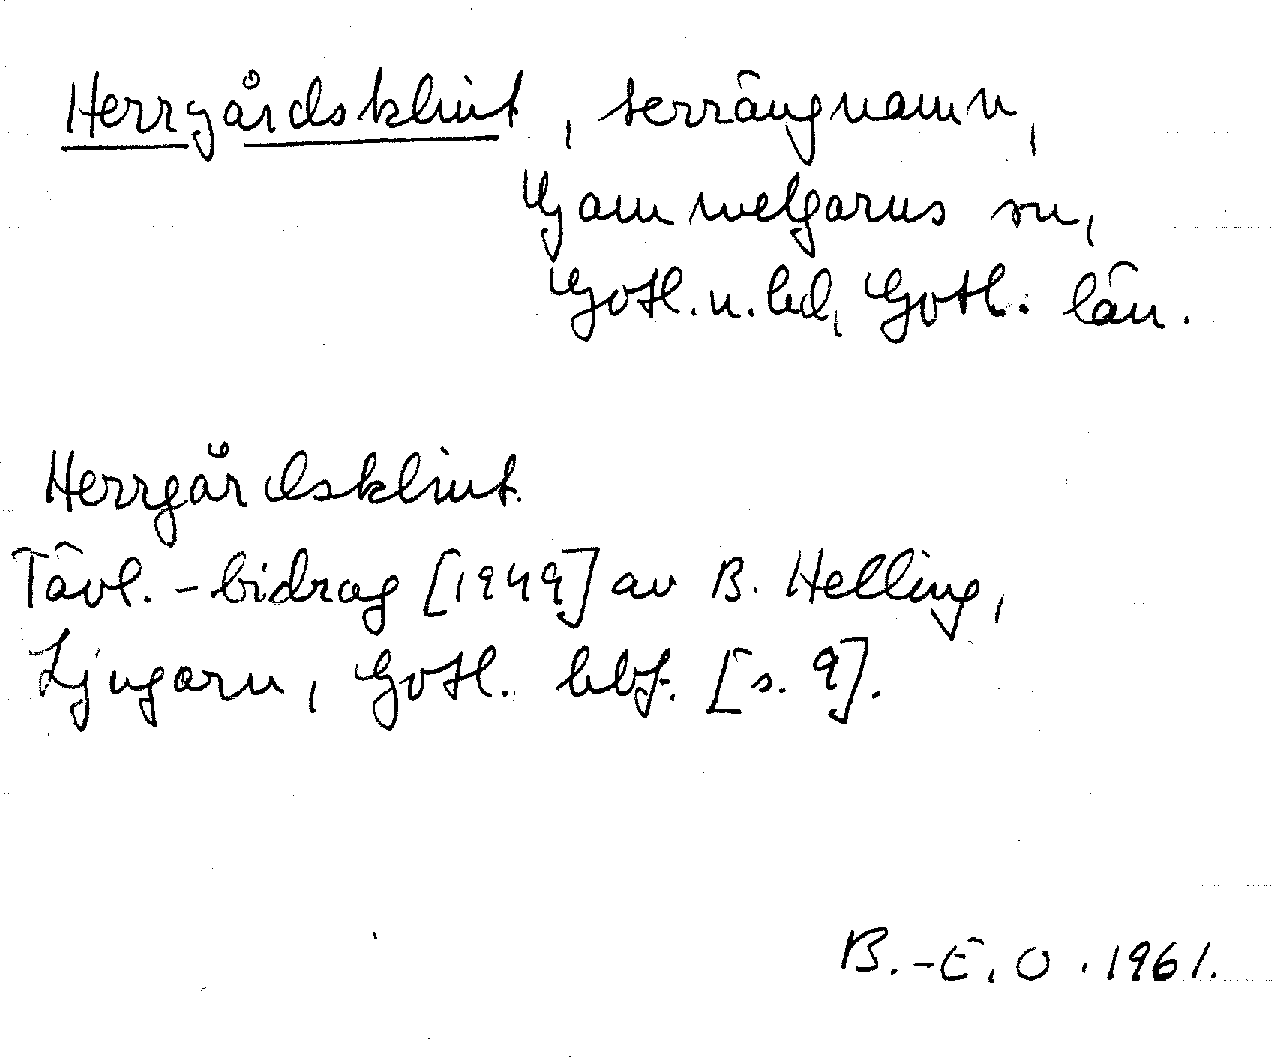 Herrgårdsklint, terrängnamn,
Gammelgarns sn,
Gotl. n. hd, Gotl. län.
Herrgårdsklint.
Tävl.-bidrag [1949] av B. Helling,
Ljugarn, Gotl. hbf. [s. 9].
B.-E. O. 1961.